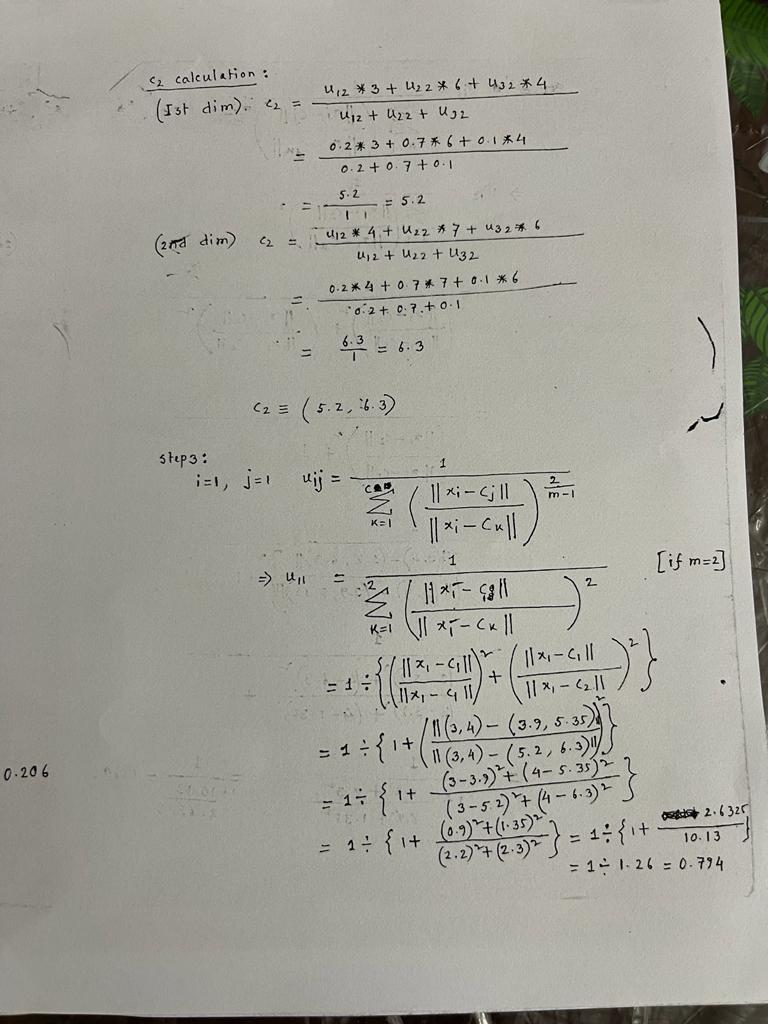 c₂ calculation:
(Ist dim). c₂ = (u₁₂ * 3 + u₂₂ * 6 + u₃₂ * 4) / (u₁₂ + u₂₂ + u₃₂)
= (0.2 * 3 + 0.7 * 6 + 0.1 * 4) / (0.2 + 0.7 + 0.1)
= 5.2 / 1 = 5.2
(2nd dim) c₂ = (u₁₂ * 4 + u₂₂ * 7 + u₃₂ * 6) / (u₁₂ + u₂₂ + u₃₂)
= (0.2 * 4 + 0.7 * 7 + 0.1 * 6) / (0.2 + 0.7 + 0.1)
= 6.3 / 1 = 6.3
c₂ ≡ (5.2, 6.3)
step3:
i=1, j=1 uᵢⱼ = 1 / Σ_{K=1}^{C} (||xᵢ - Cⱼ|| / ||xᵢ - Cₖ||)^{2/(m-1)}
⇒ u₁₁ = 1 / Σ_{K=1}^{2} (||xᵢ - Cⱼ|| / ||xᵢ - Cₖ||)² [if m=2]
= 1 ÷ {(||x₁ - C₁|| / ||x₁ - C₁||)² + (||x₁ - C₁|| / ||x₁ - C₂||)²}
= 1 ÷ {1 + (||(3,4) - (3.9, 5.35)|| / ||(3,4) - (5.2, 6.3)||)²}
0.206
= 1 ÷ {1 + ((3-3.9)² + (4-5.35)²) / ((3-5.2)² + (4-6.3)²)}
= 1 ÷ {1 + ((0.9)² + (1.35)²) / ((2.2)² + (2.3)²)} = 1 ÷ {1 + 2.6325 / 10.13}
= 1 ÷ 1.26 = 0.794